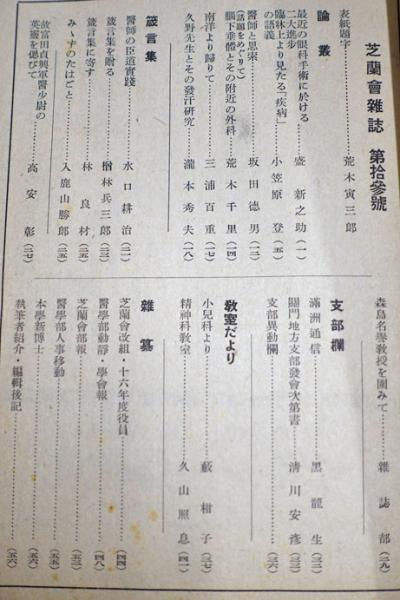 芝蘭會雜誌 第拾參號
表紙題字……荒木寅三郎
論叢
最近の眼科手術に於ける
二大進歩……盛新之助(一)
臨牀上より見たる「疾病」
の語義……小笠原登(五)
醫師と思索……坂田德男(一三)
(話題をめぐりて)
腦下垂體とその附近の外科……荒木千里(一四)
南洋より歸りて……三浦百重(一七)
久野先生とその發汗研究……瀧本秀夫(一八)
箴言集
醫師の臣道實踐……水口耕治(二一)
箴言集を贈る……楢林兵三郎(二三)
箴言集に寄す……林良材(二五)
みゝずのたはごと……入鹿山勝郎(二五)
故富田貞興軍醫少尉の
英靈を偲びて……高安彰(二七)
森島名譽教授を圍みて……雜誌部(二九)
支部欄
滿洲通信……黑龍生(三二)
關門地方支部發會次第書……清川安彥(三三)
支部異動欄……(三六)
教室だより
小兒科より……藪柑子(三七)
精神科教室……久山照息(四一)
雜纂
芝蘭會改組・十六年度役員……(四四)
醫學部動靜・學會報……(四八)
芝蘭會部報……(五三)
醫學部人事移動……(五五)
本學新博士……(五六)
執筆者紹介・編輯後記……(五六)